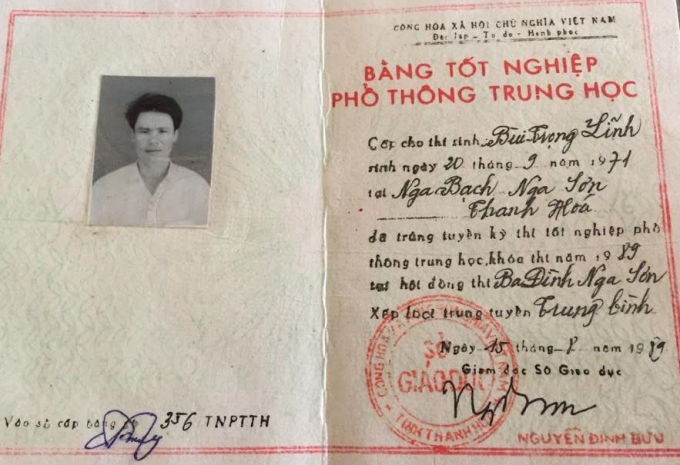 CỘNG HÒA XÃ HỘI CHỦ NGHĨA VIỆT NAM
Độc lập - Tự do - Hạnh phúc
BẰNG TỐT NGHIỆP
PHỔ THÔNG TRUNG HỌC
Cấp cho thí sinh Bùi Trọng Lĩnh
sinh ngày 20 tháng 9 năm 1971
tại Nga Bạch Nga Sơn
Thanh Hoá
đã trúng tuyển kỳ thi tốt nghiệp phổ
thông trung học, khóa thi năm 1989
tại hội đồng thi Ba Đình Nga Sơn
Xếp loại trúng tuyển Trung bình
Ngày 15 tháng 8 năm 1989
Giám đốc Sở Giáo dục
SỞ
GIÁO DỤC
TỈNH THANH HÓA
NGUYỄN ĐÌNH BƯU
Vào sổ cấp bằng 356 TNPTTH